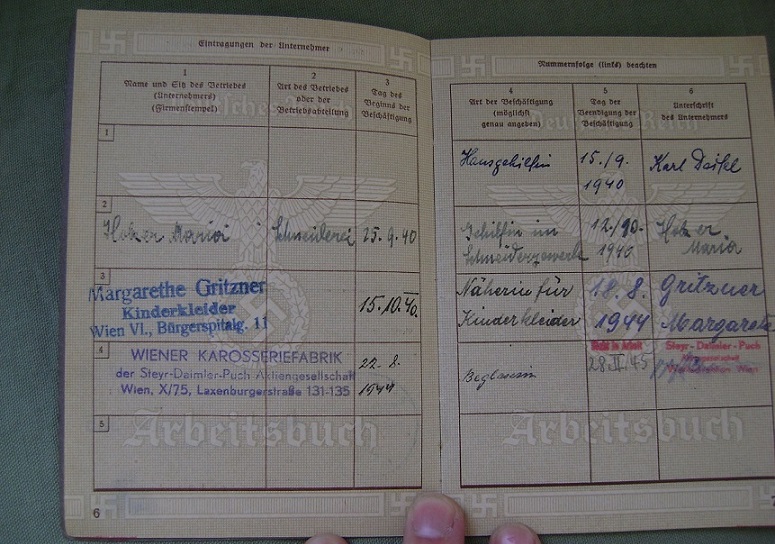 Eintragungen der Unternehmer
1
Name und Sitz des Betriebes
(Unternehmers)
(Firmenstempel)
2
Art des Betriebes
oder der
Betriebsabteilung
3
Tag des
Beginns der
Beschäftigung
1
2
Hotzer Maria
Schneiderei
25.9.40
3
Margarethe Gritzner
Kinderkleider
Wien VI., Bürgerspitalg. 11
15.10.40.
4
WIENER KAROSSERIEFABRIK
der Steyr-Daimler-Puch Aktiengesellschaft
Wien, X/75, Laxenburgerstraße 131-135
22. 8.
1944
5
Arbeitsbuch
6
Nummernfolge (links) beachten
4
Art der Beschäftigung
(möglichst
genau angeben)
5
Tag der
Beendigung der
Beschäftigung
6
Unterschrift
des Unternehmers
Deutsches Reich
Hausgehilfin
15./9.
1940
Karl
Gehilfin im
Schneidergewerbe
12./10.
1940
Hotzer
Maria
Näherin für
Kinderkleider
18. 8.
1944
Gritzner
Margarete
28.II.45
Steyr-Daimler-Puch
Aktiengesellschaft
Arbeitsbuch